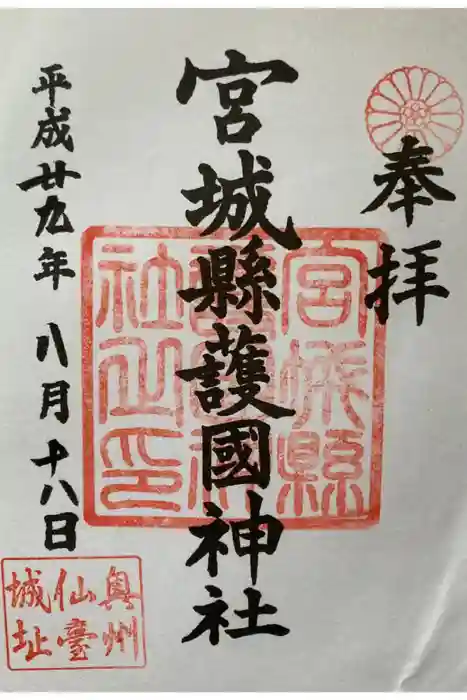 奉拝
宮城縣護國神社
平成廿九年 八月十八日
宮城縣
護國神
社之印
奥州
仙臺
城址